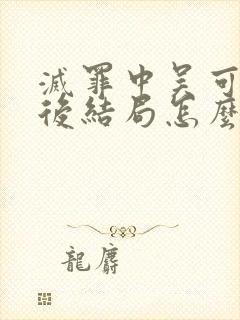 滅罪中吴可
後結局怎麼
龍麝